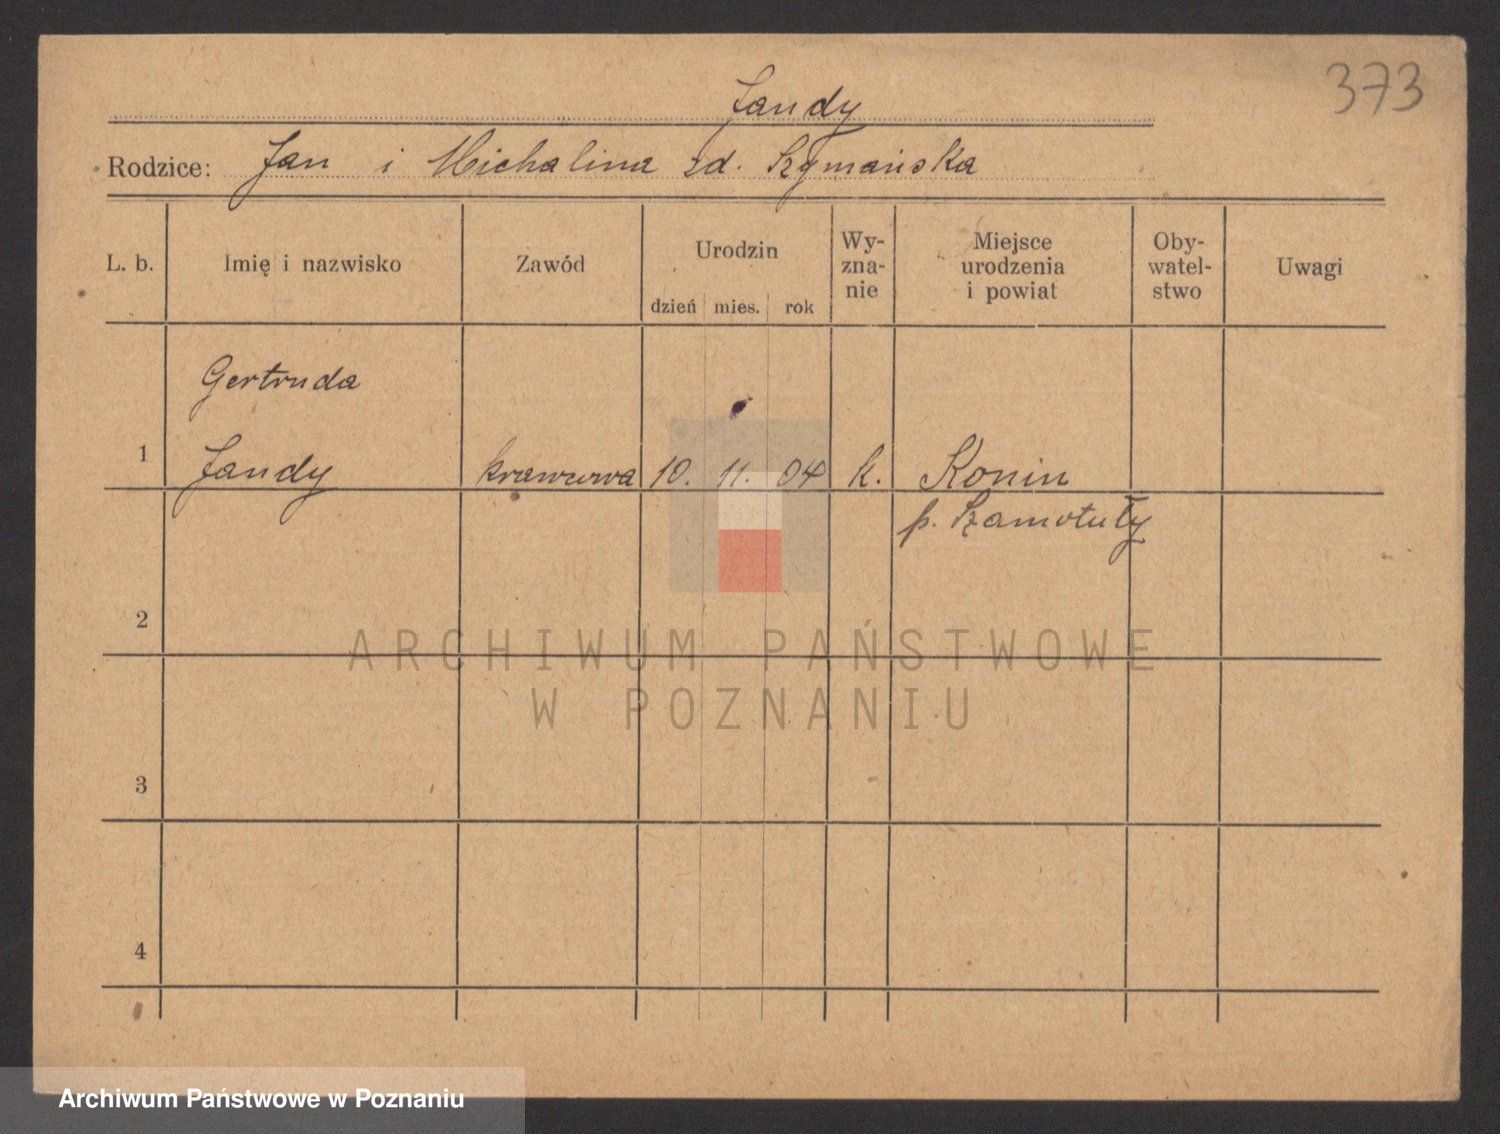 373
Jandy
Rodzice: Jan i Michalina zd. Szymańska
L. b. Imię i nazwisko Zawód Urodzin dzień mies. rok Wy-zna-nie Miejsce urodzenia i powiat Oby-watel-stwo Uwagi
Gertruda
1 Jandy krawcowa 10. 11. 04 k. Konin
p. Szamotuły
2
ARCHIWUM PAŃSTWOWE
W POZNANIU
3
4
Archiwum Państwowe w Poznaniu